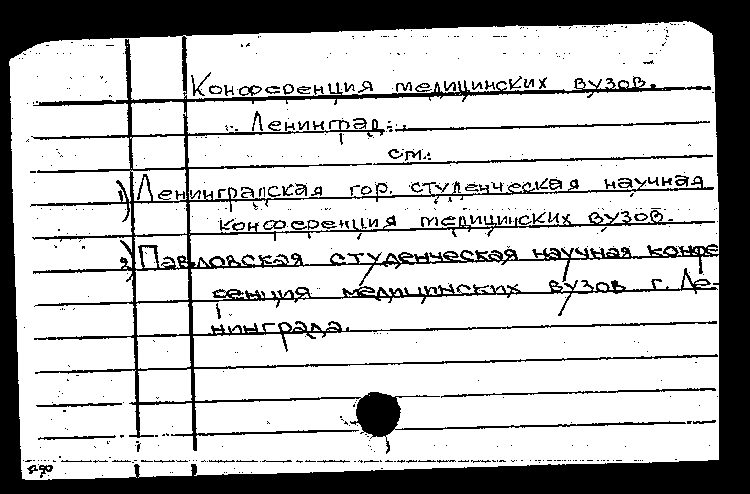 Конференция медицинских вузов.
Ленинград.
см.:
1) Ленинградская гор. студенческая научная
конференция медицинских вузов.
2) Павловская студенческая научная конфе
ренция медицинских вузов г. Ле-
нинграда.